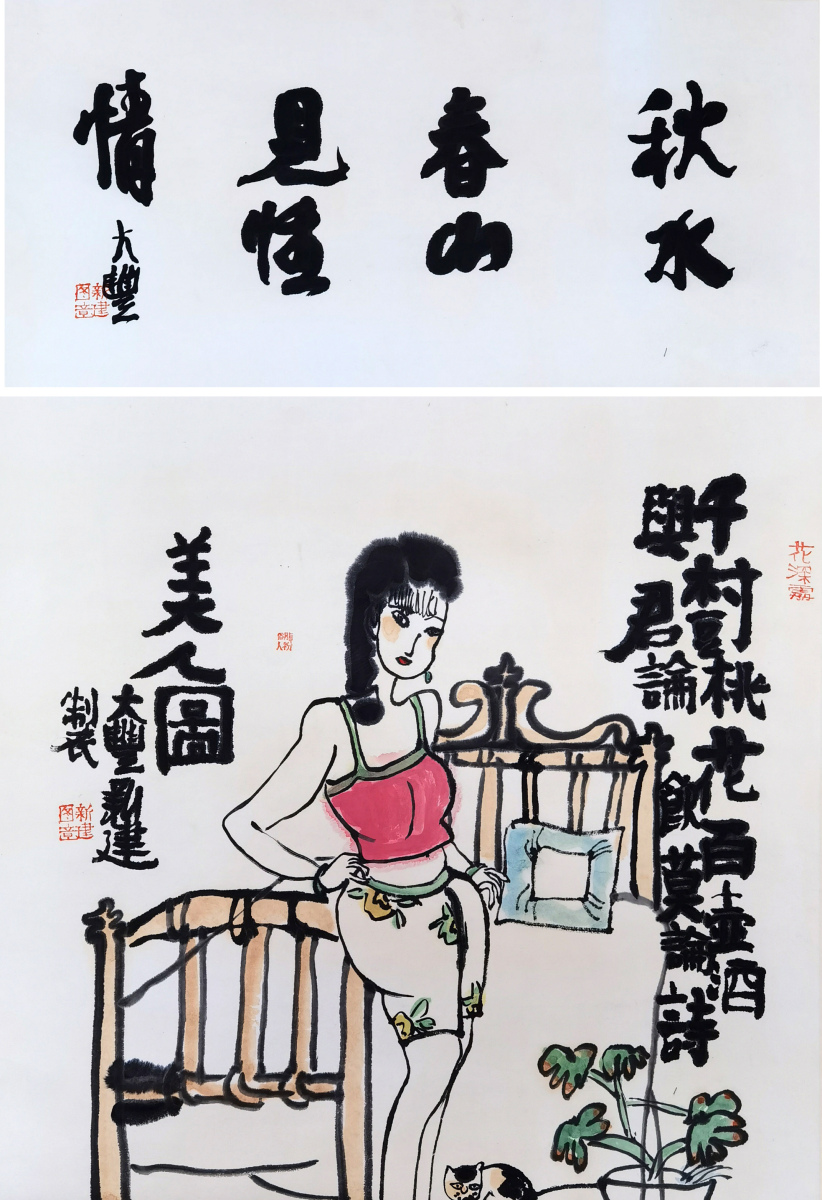 秋水
春山
見性
情
大豐
新建图章
花深處
千樹桃花百壺酒
與君論飲莫論詩
美人圖
大豐新建
製
新建图章